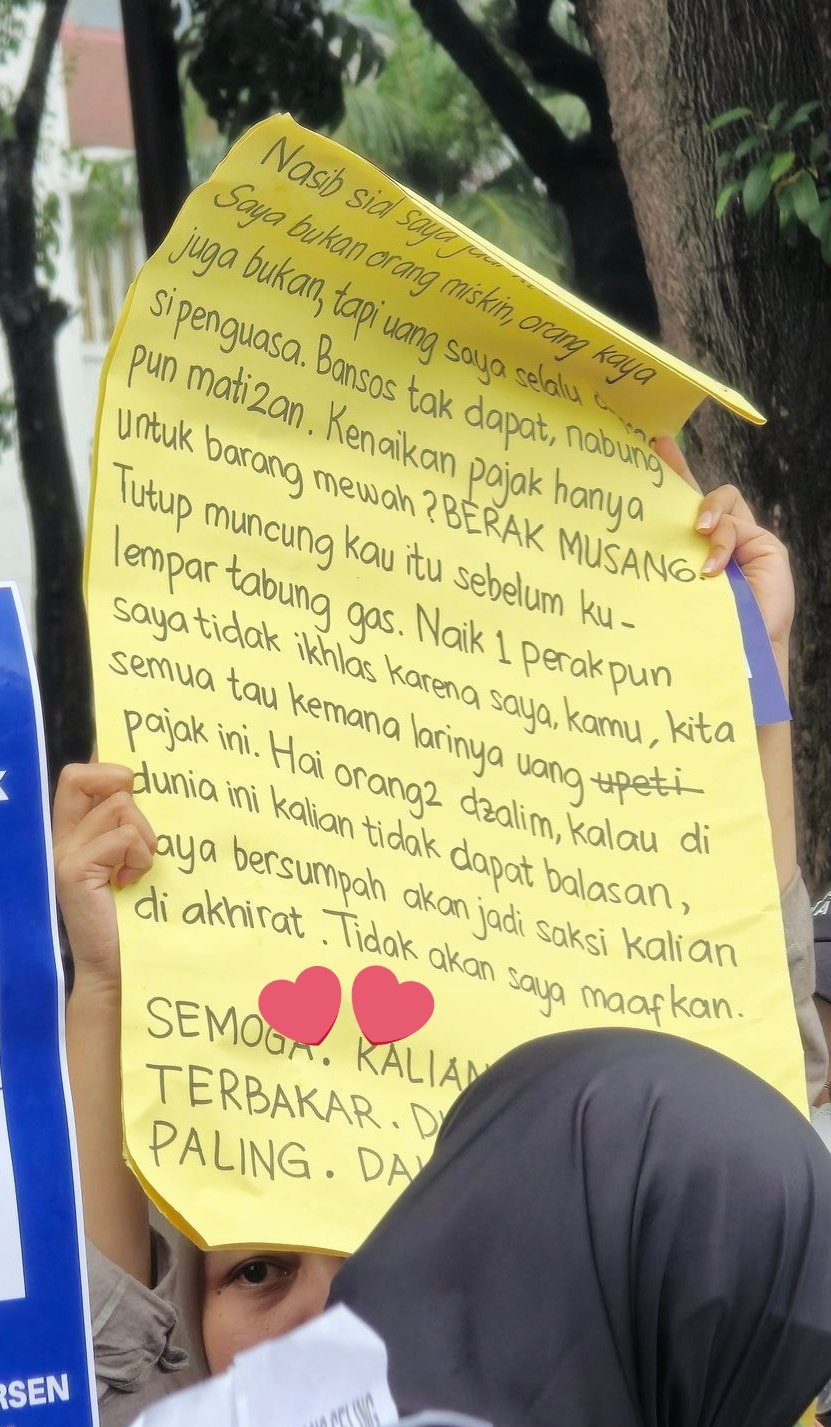 Nasib sial saya
Saya bukan orang miskin, orang kaya
juga bukan, tapi uang saya selalu
si penguasa. Bansos tak dapat, nabung
pun mati2an. Kenaikan pajak hanya
untuk barang mewah? BERAK MUSANG.
Tutup muncung kau itu sebelum ku-
lempar tabung gas. Naik 1 perak pun
saya tidak ikhlas karena saya, kamu, kita
semua tau kemana larinya uang upeti
pajak ini. Hai orang2 dzalim, kalau di
dunia ini kalian tidak dapat balasan,
saya bersumpah akan jadi saksi kalian
di akhirat. Tidak akan saya maafkan.
SEMOGA. KALIAN
TERBAKAR.
PALING.
RSEN